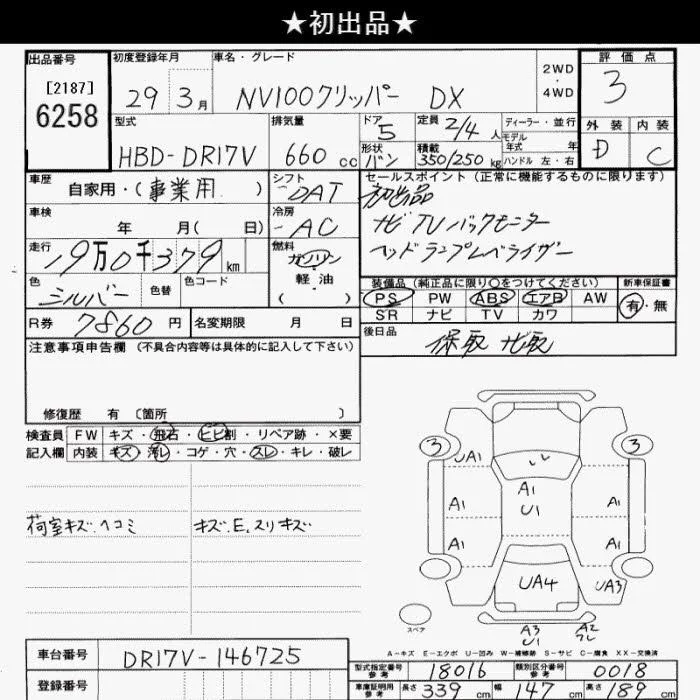 ★初出品★
出品番号
[2187]
6258
初度登録年月
29年3月
車名・グレード
NV100クリッパー DX
2WD
・
4WD
評価点
3
外装 内装
D C
型式
HBD-DR17V
排気量
660cc
ドア
5
形状
バン
定員
2/4人
積載
350/250kg
ディーラー・並行
モデル
年式 年
ハンドル 左・右
車歴
自家用・(事業用)
シフト
DAT
セールスポイント(正常に機能するものに限ります)
初出品
ナビTVバックモニター
ヘッドランプレベライザー
車検
年 月( 日)
冷房
AC
走行
19万0千379km
燃料
ガソリン
軽油
( )
色
シルバー
色替
色コード
装備品(純正品に限り○をつけてください)
PS PW ABS エアB AW
SR ナビ TV カワ
新車保証書
有・無
R券 7860円
名変期限 月 日
後日品
保取 ナビ取
注意事項申告欄(不具合内容等は具体的に記入して下さい)
修復歴 有〔箇所 〕
検査員
記入欄
FW キズ・飛石・ヒビ割・リペア跡・×要
内装 キズ・汚レ・コゲ・穴・スレ・キレ・破レ
荷室キズ.ヘコミ
キズ.E.スリキズ
3
3
UA1
A1
U1
A1
A1
A1
A1
UA4
UA3
スペア
A3
U1
A2
A-キズ E-エクボ U-凹み W-補修跡 S-サビ C-腐食 XX-交換済
車台番号
DR17V-146725
登録番号
型式指定番号
参考
18016
類別区分番号
参考
0018
車庫証明用
参考
長さ 339cm 幅 147cm 高さ 189cm